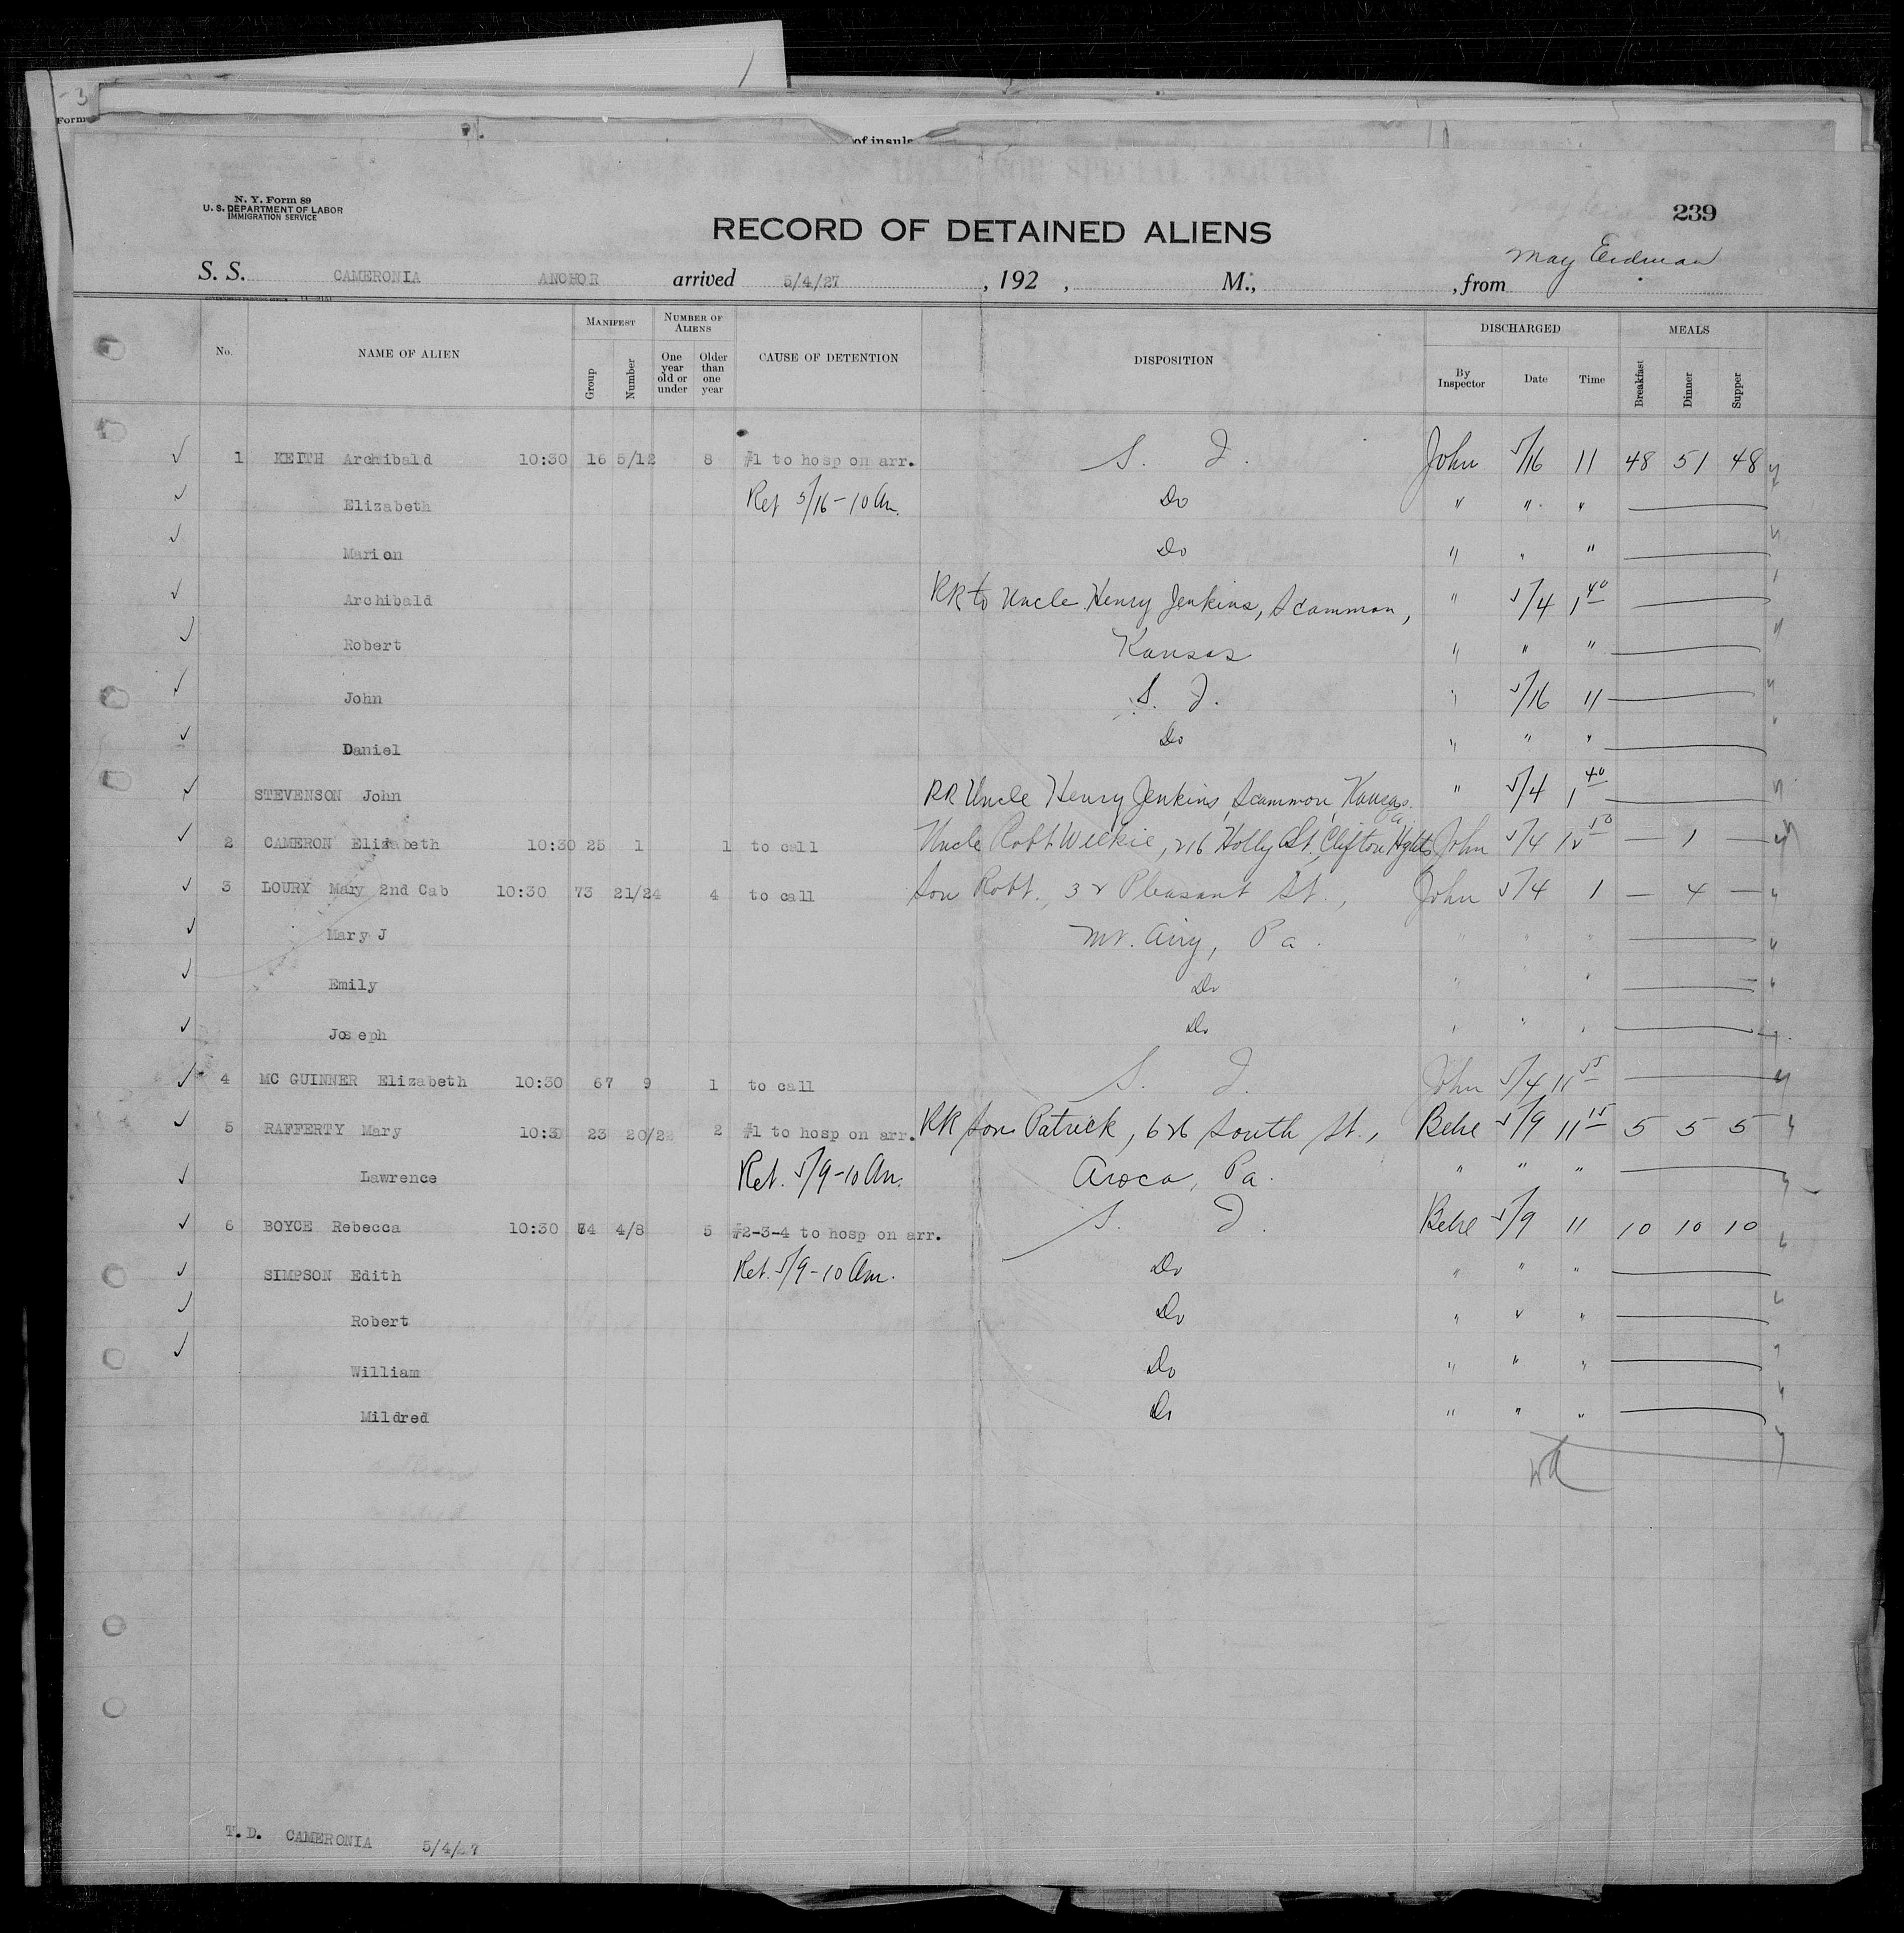 3
Form
of insula
N. Y. Form 89
U. S. DEPARTMENT OF LABOR
IMMIGRATION SERVICE
239
RECORD OF DETAINED ALIENS
May Erdman
S. S. CAMERONIA ANCHOR arrived 5/4/27, 192 , M., , from
No. NAME OF ALIEN MANIFEST Group Number NUMBER OF ALIENS One year old or under Older than one year CAUSE OF DETENTION DISPOSITION DISCHARGED By Inspector Date Time MEALS Breakfast Dinner Supper
1 KEITH Archibald 10:30 16 5/12 8 #1 to hosp on arr. S. I. John 5/16 11 48 51 48
Elizabeth Ret 5/16 - 10 Am. Do " " "
Marion Do " " "
Archibald RR to Uncle Henry Jenkins, Scammon, " 5/4 1 40
Robert Kansas " " "
John S. I. " 5/16 11
Daniel Do " " "
STEVENSON John RR Uncle Henry Jenkins, Scammon, Kansas. " 5/4 1 40
2 CAMERON Elizabeth 10:30 25 1 1 to call Uncle Robt Wilkie, 216 Holly St., Clifton Hghts Pa John 5/4 12 50 — 1 —
3 LOURY Mary 2nd Cab 10:30 73 21/24 4 to call Son Robt., 32 Pleasant St., John 5/4 1 — 4 —
Mary J Mt. Airy, Pa. " " "
Emily Do " "
Joseph Do " " "
4 MC GUINNER Elizabeth 10:30 67 9 1 to call S. I. John 5/4 11 55
5 RAFFERTY Mary 10:30 23 20/22 2 #1 to hosp on arr. RR Son Patrick, 626 South St., Behe 5/9 11 15 5 5 5
Lawrence Ret. 5/9 - 10 Am. Avoca, Pa. " " "
6 BOYCE Rebecca 10:30 4/8 5 #2-3-4 to hosp on arr. S. I. Behe 5/9 11 10 10 10
SIMPSON Edith Ret. 5/9 - 10 Am. Do " " "
Robert Do " " "
William Do " " "
Mildred Do " " "
T.D. CAMERONIA 5/4/27